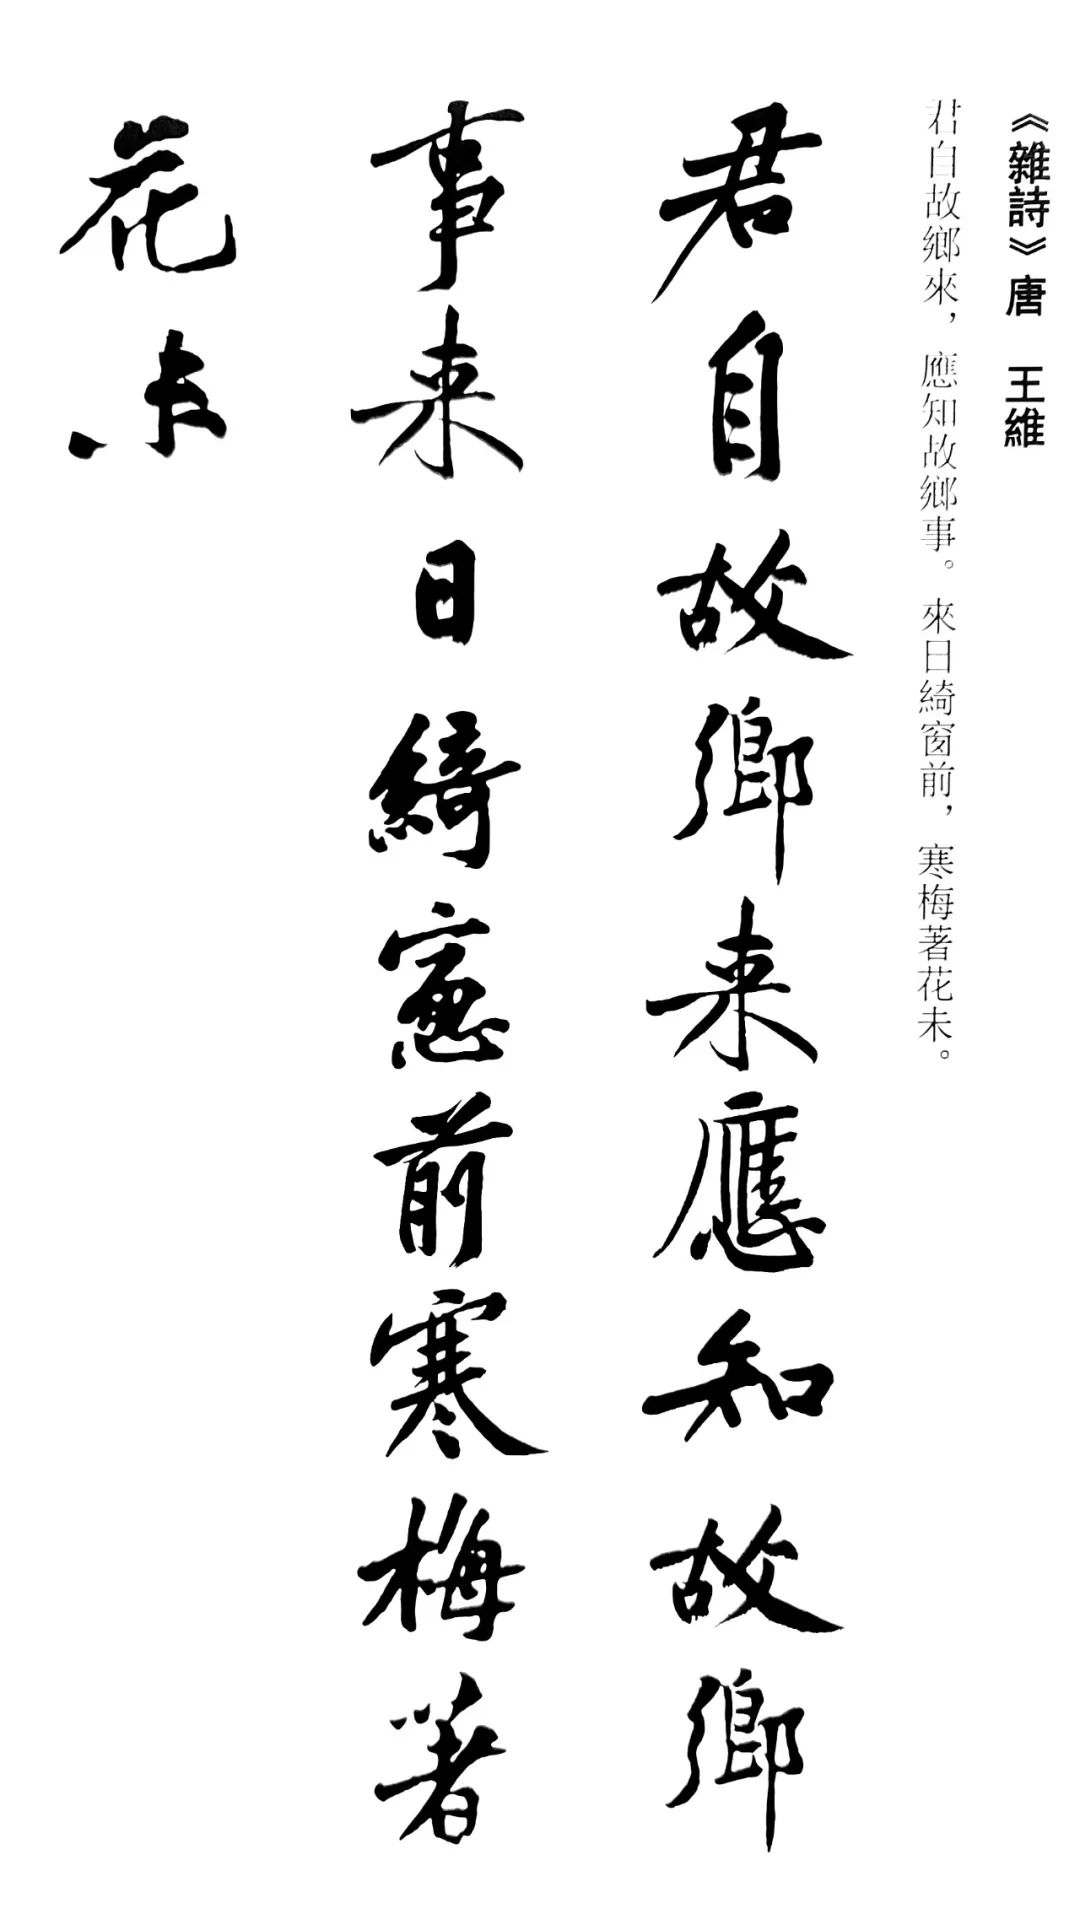 《雜詩》唐　王維
君自故鄉來，應知故鄉事。來日綺窗前，寒梅著花未。
君自故鄉来應知故鄉
事来日綺窓前寒梅著
花未